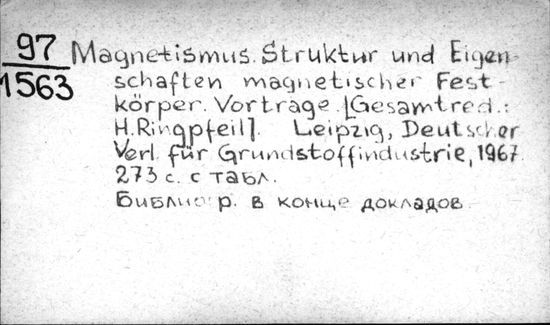 97
1563
Magnetismus. Struktur und Eigen-
schaften magnetischer Fest-
körper. Vorträge. [Gesamtred.:
H. Ringpfeil]. Leipzig, Deutscher
Verl. für Grundstoffindustrie, 1967.
273 с. с табл.
Библиогр. в конце докладов.